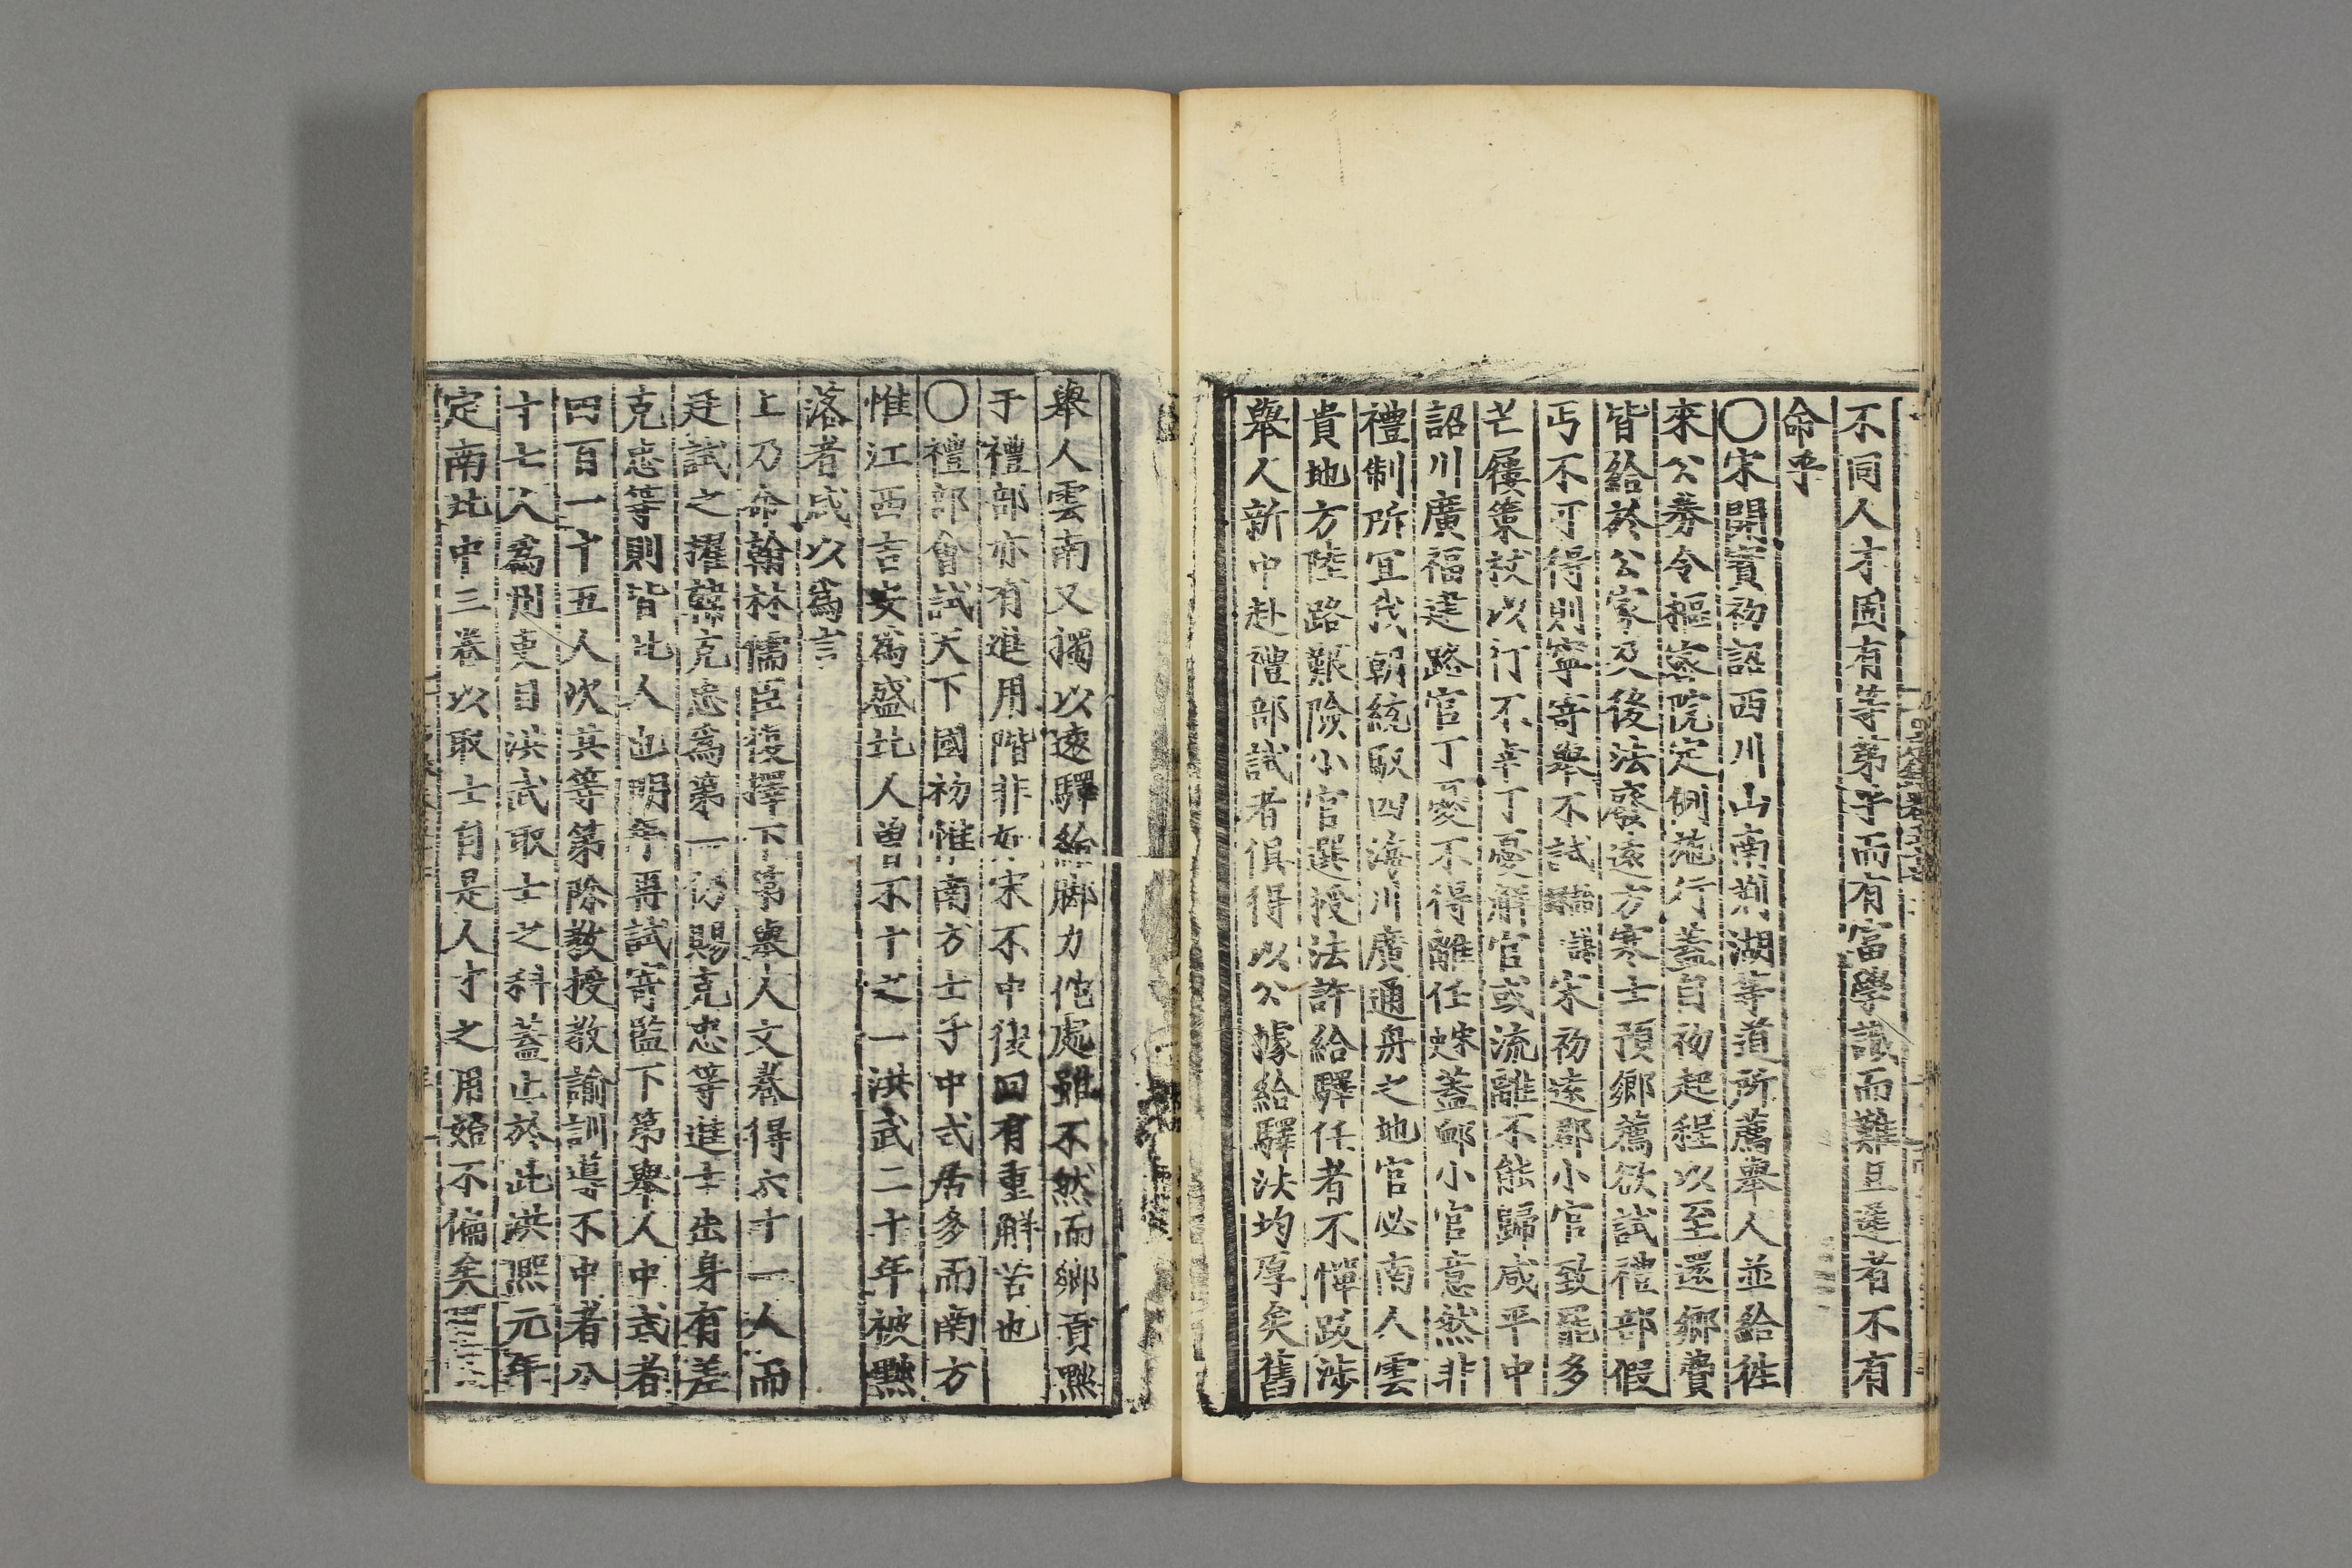 不同人才固有等第乎而有富學識而難且遲者不有
命乎
〇宋開寳初詔西川山南荆湖等道所薦舉人並給徃
來公劵令樞密院定例施行蓋自初起程以至還郷費
皆給於公家及後法廢遠方寒士預郷薦欲試禮部假
丐不可得則寧寄舉不試宋初逺郡小官致罷多
芒屨策杖以行不幸丁憂解官或流離不能歸咸平中
詔川廣福建路官丁憂不得離任蓋䘏小官意然非
禮制所宜我朝統馭四海川廣通舟之地官必南人雲
貴地方陸路艱險小官選授法許給驛任者不憚跋涉
舉人新中赴禮部試者俱得以公據給驛法均厚矣舊
舉人雲南又獨以逺驛給脚力他處雖不然而郷貢㸃
于禮部亦有進用階非如宋不中後回有重解苦也
〇禮部會試天下國初惟南方士子中式居多而南方
惟江西吉安爲盛北人曽不十之一洪武二十年被黜
落者咸以爲言
上乃命翰林儒臣復擇下第舉人文巻得六十一人而
廷試之擢韓克忠爲第一仍賜克忠等進士出身有差
克忠等則皆北人也明年再試寄監下第舉人中式者
四百一十五人次其等第除教授教諭訓導不中者八
十七人爲州吏目洪武取士之科蓋止於此洪熙元年
定南北中三巻以取士自是人才之用始不偏矣